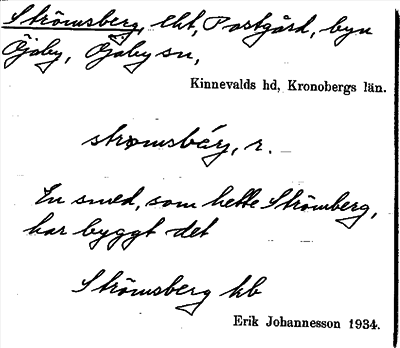 Strömsberg, lht, Postgård, byn
Öjaby, Öjaby sn,
Kinnevalds hd, Kronobergs län.
strømsbärj, r.
En smed, som hette Strömberg,
har byggt det
Strömsberg kb
Erik Johannesson 1934.